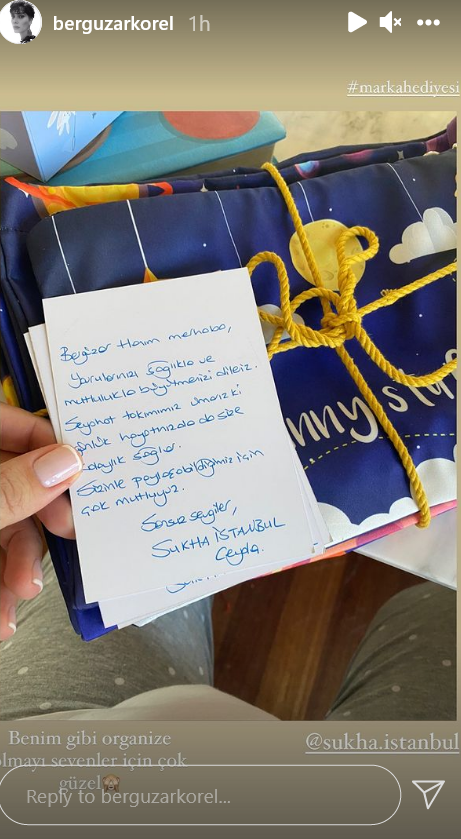 berguzarkorel 1h
#markahediyesi
Bergüzar Hanım merhaba,
Yavrularınızı sağlıkla ve
mutlulukla büyütmenizi dileriz.
Seyahat takımımız umarız ki
günlük hayatınızda da size
kolaylık sağlar.
Sizinle paylaşabildiğimiz için
çok mutluyuz.
Sonsuz sevgiler,
SUKHA İSTANBUL
Ceyda.
Benim gibi organize
olmayı sevenler için çok
güzel🙈
@sukha.istanbul
Reply to berguzarkorel...